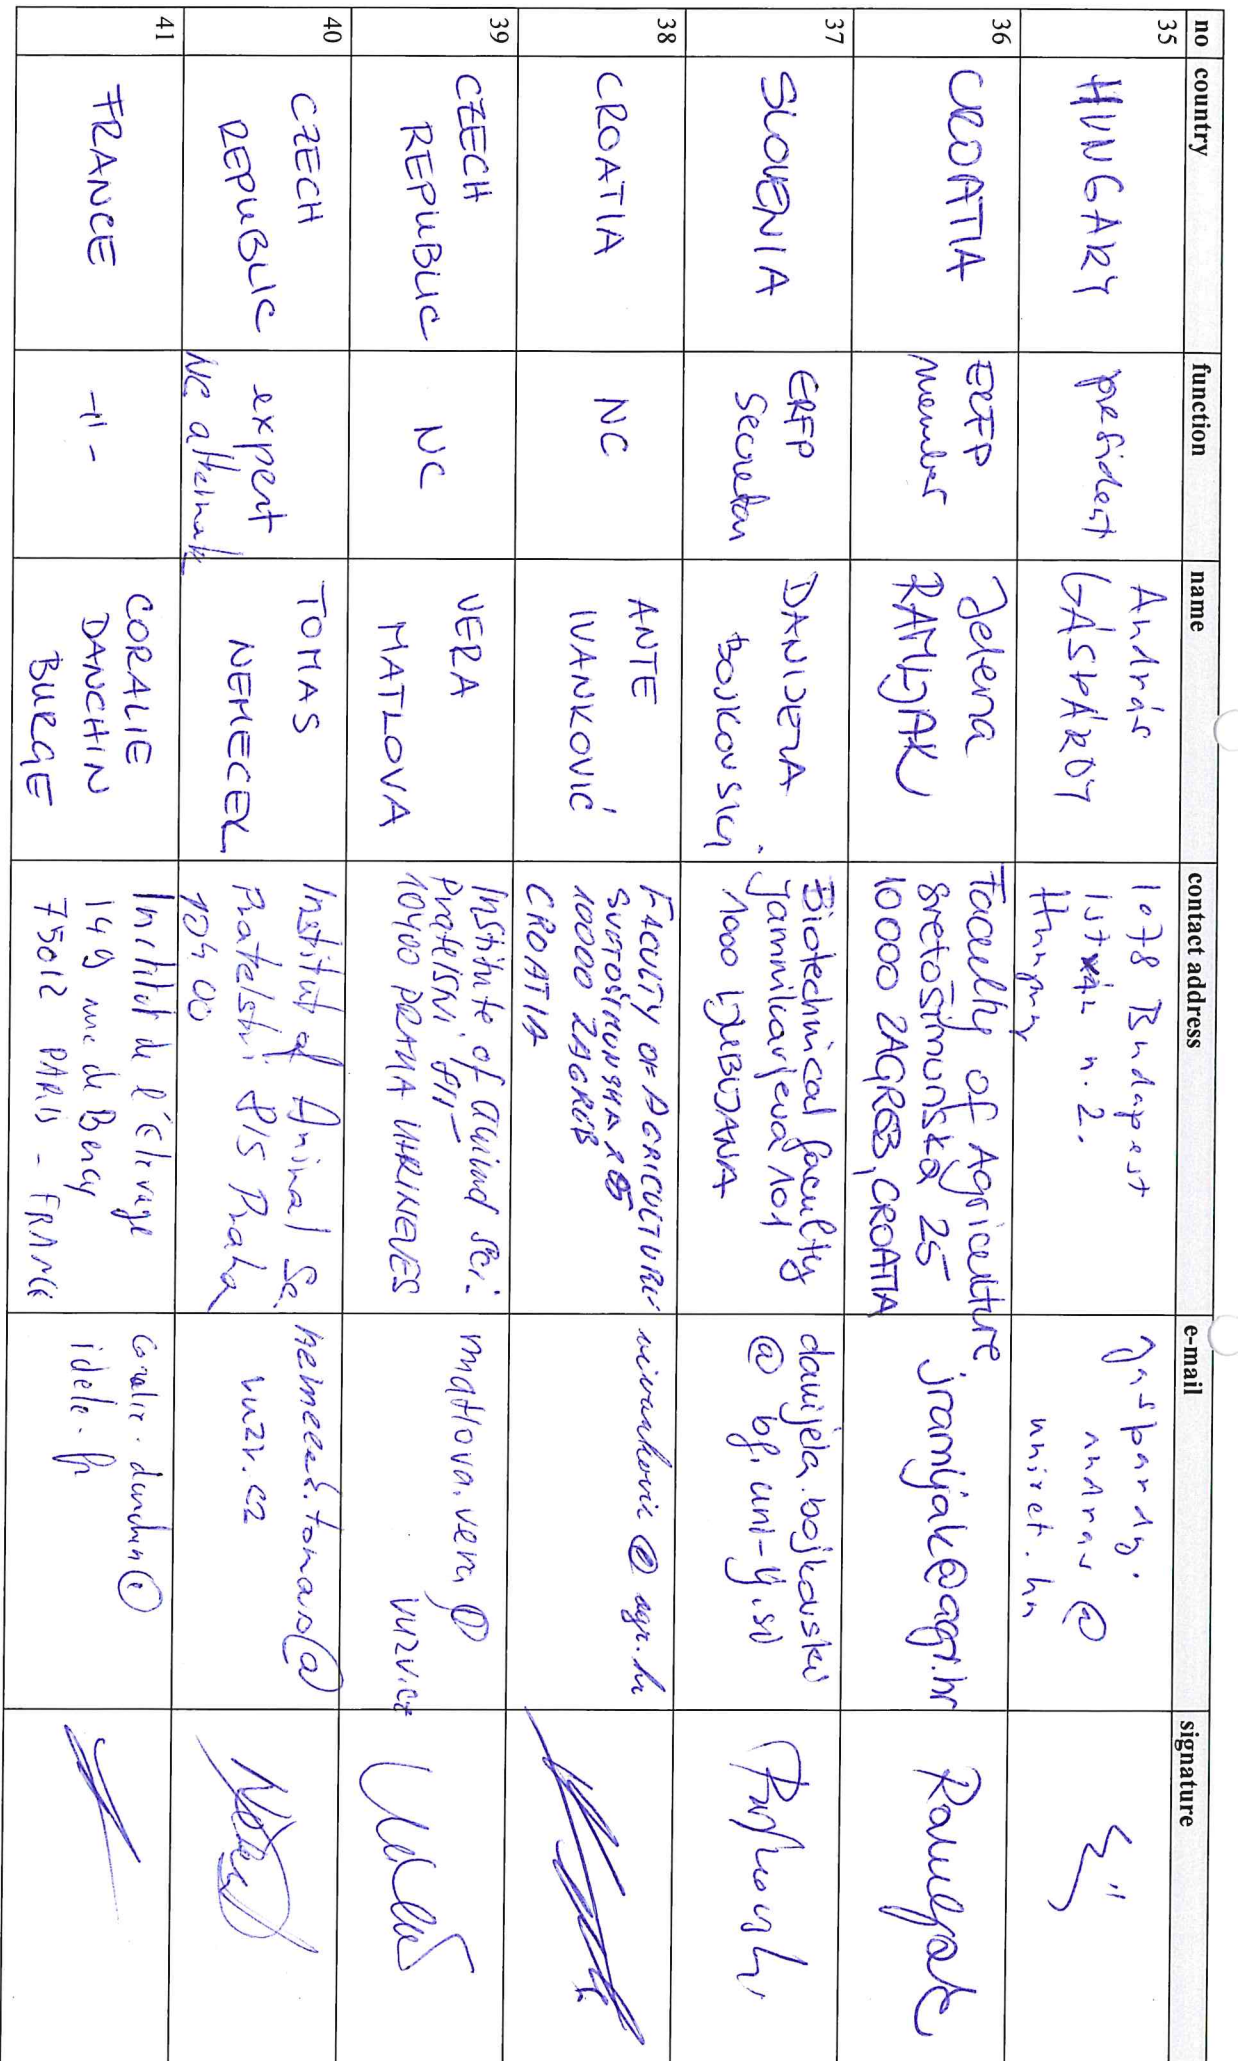 no country function name contact address e-mail signature
35
HUNGARY
president
András
GÁSPÁRDY
1078 Budapest
István u. 2.
Hungary
gaspardy.
andras @
univet.hu
36
CROATIA
ERFP
member
Jelena
RAMLJAK
Faculty of Agriculture
Svetošimunska 25
10000 ZAGREB, CROATIA
jramljak@agr.hr
Ramljak
37
SLOVENIA
ERFP
Secretary
DANIJELA
BOJKOVSKI
Biotechnical faculty
Jamnikarjeva 101
1000 LJUBLJANA
danijela.bojkovski
@ bf.uni-lj.si
38
CROATIA
NC
ANTE
IVANKOVIĆ
FACULTY OF AGRICULTURE
SVETOŠIMUNSKA 25
10000 ZAGREB
CROATIA
aivankovic @ agr.hr
39
CZECH
REPUBLIC
NC
VERA
MATLOVA
Institute of animal Sci.
10400 PRAHA UHRINEVES
matlova.vera @
vuzv.cz
40
CZECH
REPUBLIC
expert
NC alternate
TOMAS
NEMECEK
Institut of Animal Sc.
Pratelstvi 815 Praha
104 00
nemecek.tomas@
vuzv.cz
41
FRANCE
-"-
CORALIE
DANCHIN
BURGE
Institut de l'Élevage
149 rue de Bercy
75012 PARIS - FRANCE
coralie.danchin@
idele.fr